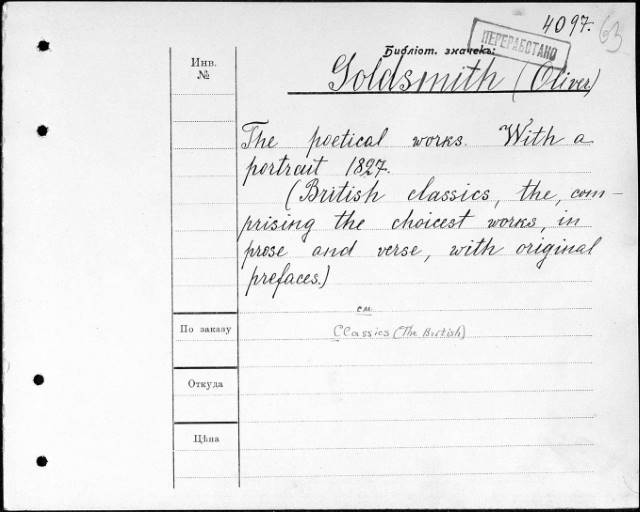 4097.
63
ПЕРЕРАБОТАНО
Библіот. значекъ:
Инв.
№
Goldsmith (Oliver)
The poetical works. With a
portrait 1827.
(British classics, the, com-
prising the choicest works, in
prose and verse, with original
prefaces.)
см.
Classics (The British)
По заказу
Откуда
Цѣна